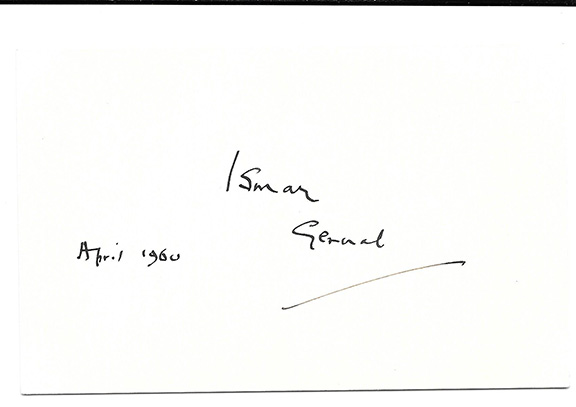 Ismay
General
April 1960